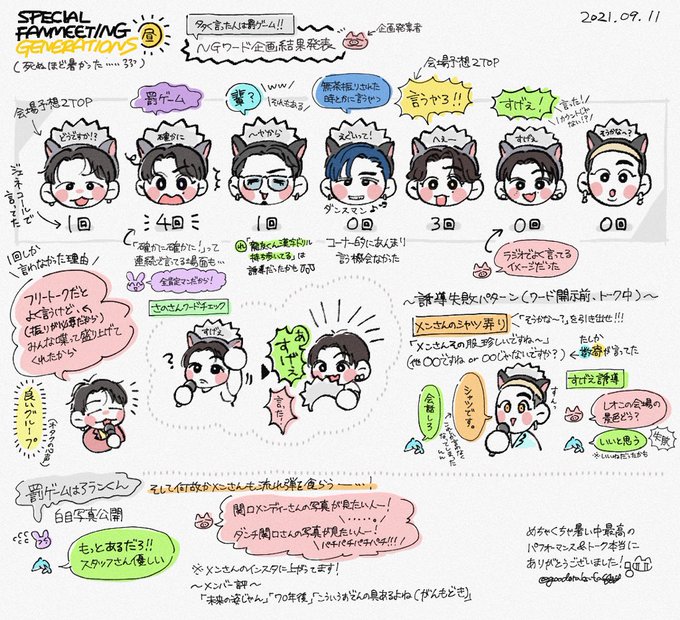 SPECIAL
FANMEETING
GENERATIONS
昼
(死ぬほど暑かった……ｶﾗｶﾗ)
多く言った人は罰ゲーム!!
NGワード企画結果発表
企画発案者
2021.09.11
会場予想2TOP
罰ゲーム
輩?
ww
それもある
無茶振りされた
時とかに言うやつ
会場予想2TOP
言うやろ!!
すげえ!
言った!
カウントじゃない!?
どうですか!?
確かに
へやから
えぐいって!
へぇー
すげえ
そうかな〜?
ダンスマン♪
ジェネコールで
言ってた
1回
4回
1回
0回
3回
0回
0回
「確かに確かに!」って
連続で言ってる場面も…
全肯定マンだから!
「龍友くん漢字ドリル
持ち歩いてる」は
誘導だったかも
コーナー的にあんまり
言う機会なかった
ラジオでよく言ってる
イメージだった
1回しか
言わなかった理由
フリートークだと
よく言うけど、
(振りが必要だから)
みんな喋って盛り上げて
くれたから
良いグループ
(オタクの心の声)
さのさんワードチェック
すげえ
?
あ!
すげえ
言った!
〜誘導失敗パターン(ワード開示前、トーク中)〜
メンさんのシャツ弄り
「そうかな〜?」を引き出せ!!!
「メンさんその服珍しいですね〜」
(他〇〇ですね or 〇〇じゃないですか?)
たしか
数寄が言ってた
会話しろ
シャツです。
すんっ
すげえ誘導
レオこの会場の
景色どう?
いいと思う
失敗
※いいねだったかも
罰ゲームは3ランくん
白目写真公開
もっとあるだろ!!
スタッフさん優しい
そして何故かメンさんも流れ弾を食らう……!
関口メンディーさんの写真が見たい人ー!
……。
ダンチ関口さんの写真が見たい人ー!
パチパチパチパチ!!!
※メンさんのインスタに上がってます!
〜メンバー評〜
「未来の姿じゃん」「70年後」「こういうおでんの具あるよね(がんもどき)」
めちゃくちゃ暑い中最高の
パフォーマンス&トーク本当に
ありがとうございました!